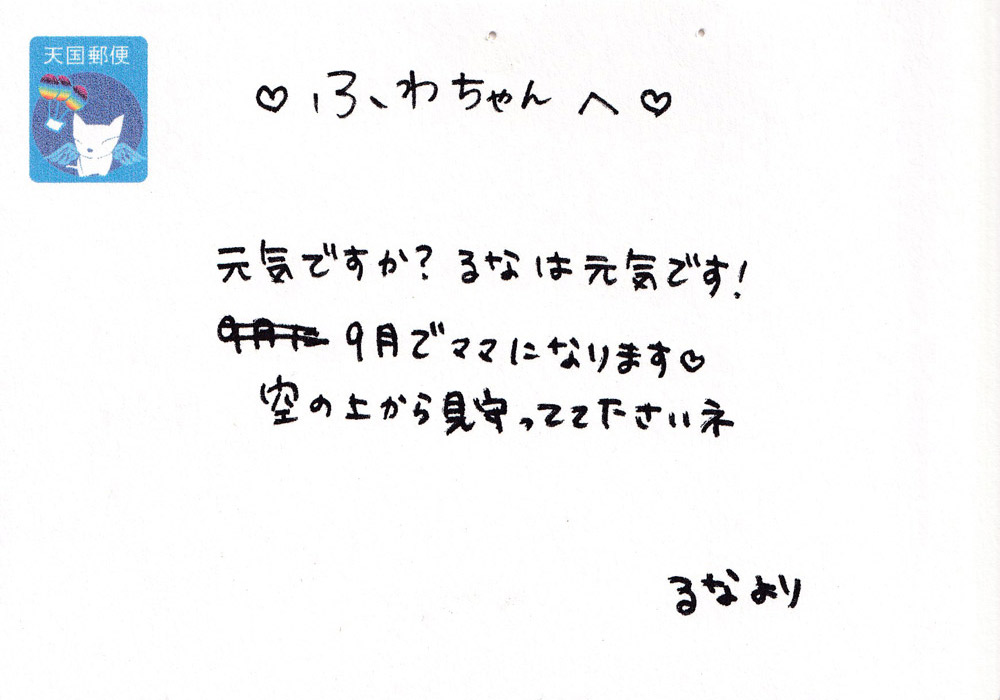 天国郵便
♡ふわちゃんへ♡
元気ですか？るなは元気です！
9月に 9月でママになります♡
空の上から見守ってて下さいネ
るなより